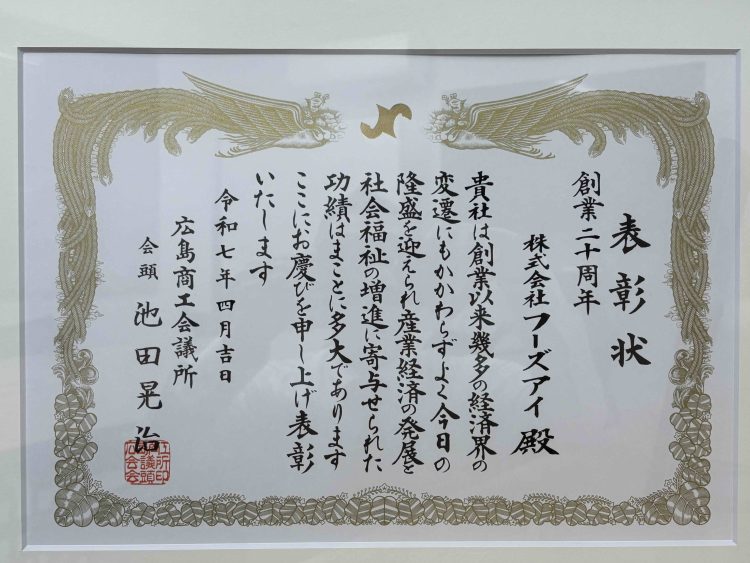 表彰状
創業二十周年
株式会社フーズアイ殿
貴社は創業以来幾多の経済界の
変遷にもかかわらずよく今日の
隆盛を迎えられ産業経済の発展と
社会福祉の増進に寄与せられた
功績はまことに多大であります
ここにお慶びを申し上げ表彰
いたします
令和七年四月吉日
広島商工会議所
会頭 池田晃治